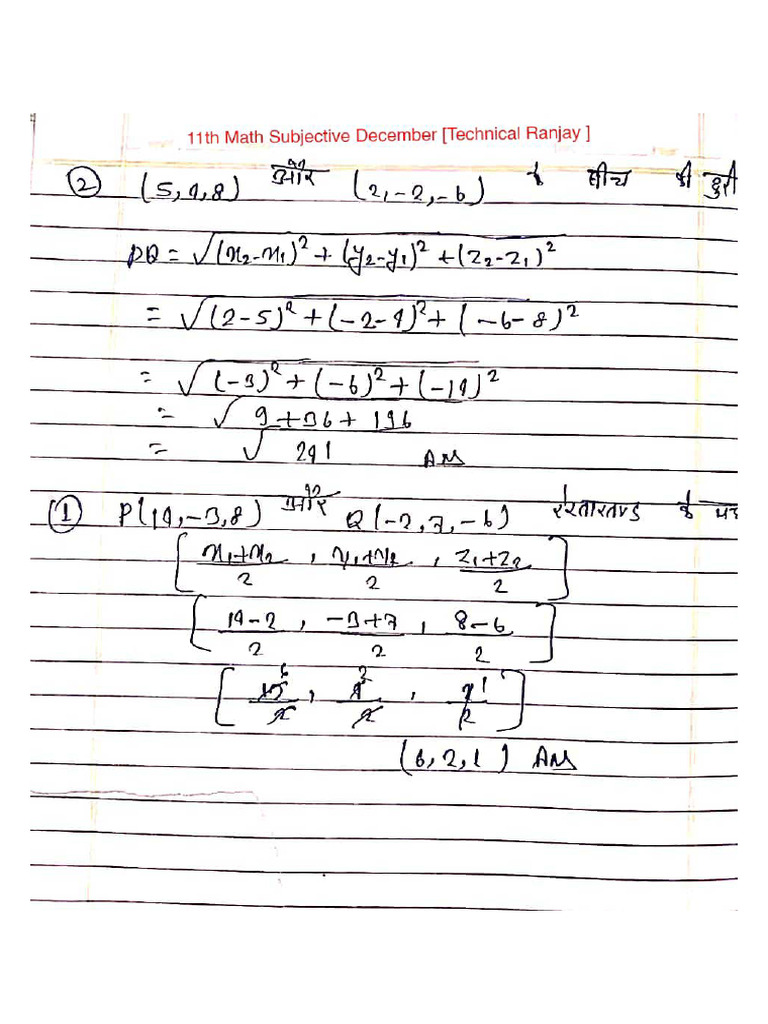 11th Math Subjective December [Technical Ranjay ]
② (5,4,8) और (2,-2,-6) के बीच की दुरी
PQ = √(x₂-x₁)² + (y₂-y₁)² + (z₂-z₁)²
= √(2-5)² + (-2-4)² + (-6-8)²
= √(-3)² + (-6)² + (-14)²
= √9+36+196
= √241 Ans
① P(14,-3,8) और Q(-2,7,-6) रेखाखण्ड के
[x₁+x₂/2, y₁+y₂/2, z₁+z₂/2]
[14-2/2, -3+7/2, 8-6/2]
[12/2, 4/2, 2/2]
(6,2,1) Ans